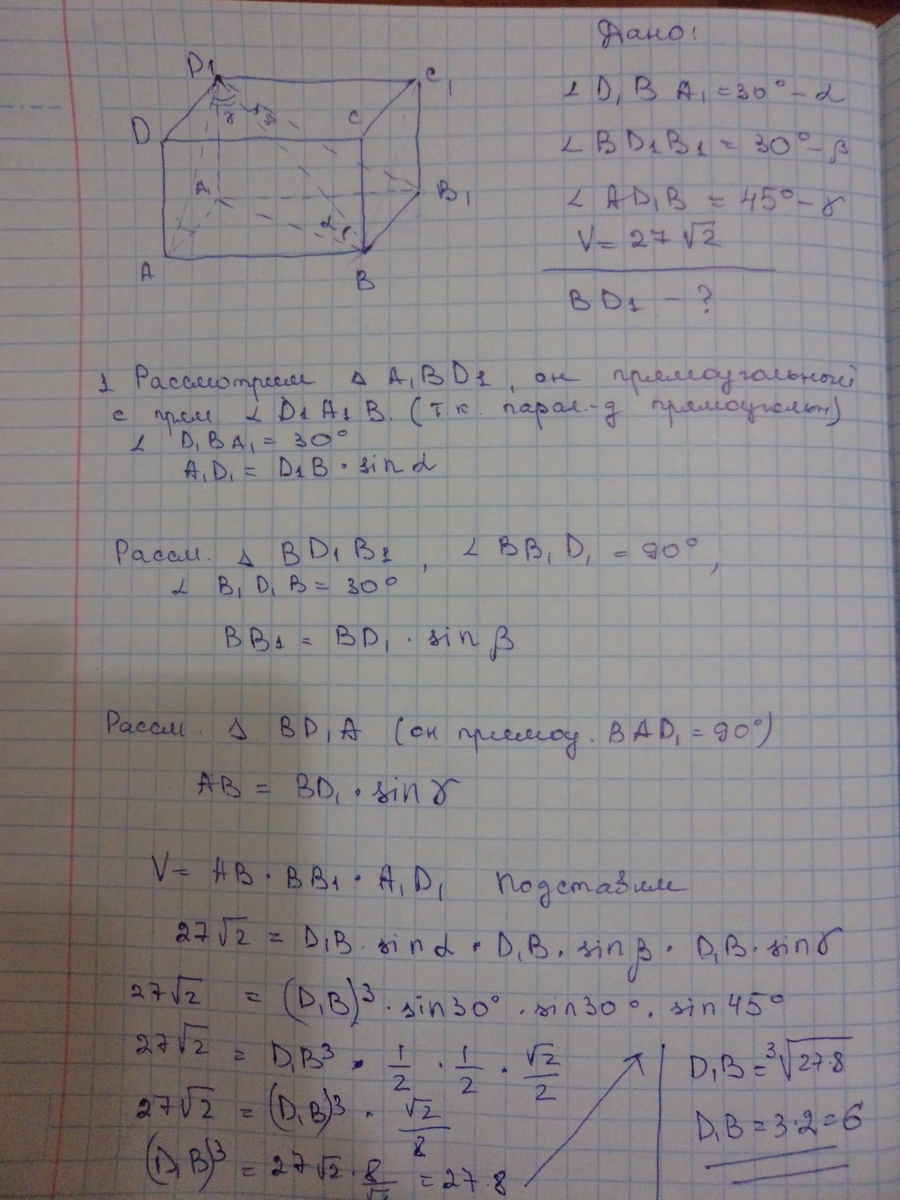 Дано:
D1
C1
∠ D₁ B A₁ = 30° - α
D
C
γ
β
∠ BD1B1 = 30° - β
A₁
B1
∠ AD₁B = 45° - γ
α
V = 27 √2
A
B
BD1 - ?
1 Рассмотрим Δ A₁BD1, он прямоугольный
с прям ∠ D1A1B. (т.к. парал-д прямоугольн)
∠ D₁BA₁ = 30°
A₁D₁ = D1B · sin α
Рассм. Δ BD₁B1, ∠ BB₁D₁ = 90°,
∠ B₁D₁B = 30°
BB1 = BD₁ · sin β
Рассм. Δ BD₁A (он прямоуг. BAD₁ = 90°)
AB = BD₁ · sin γ
V = AB · BB1 · A₁D₁ Подставим
27√2 = D₁B · sin α · D₁B · sin β · D₁B · sin γ
27√2 = (D₁B)³ · sin 30° · sin 30° · sin 45°
27√2 = D₁B³ · 1/2 · 1/2 · √2/2
27√2 = (D₁B)³ · √2/8
(D₁B)³ = 27√2 · 8/√2 = 27·8
D₁B = ³√27·8
D₁B = 3·2 = 6